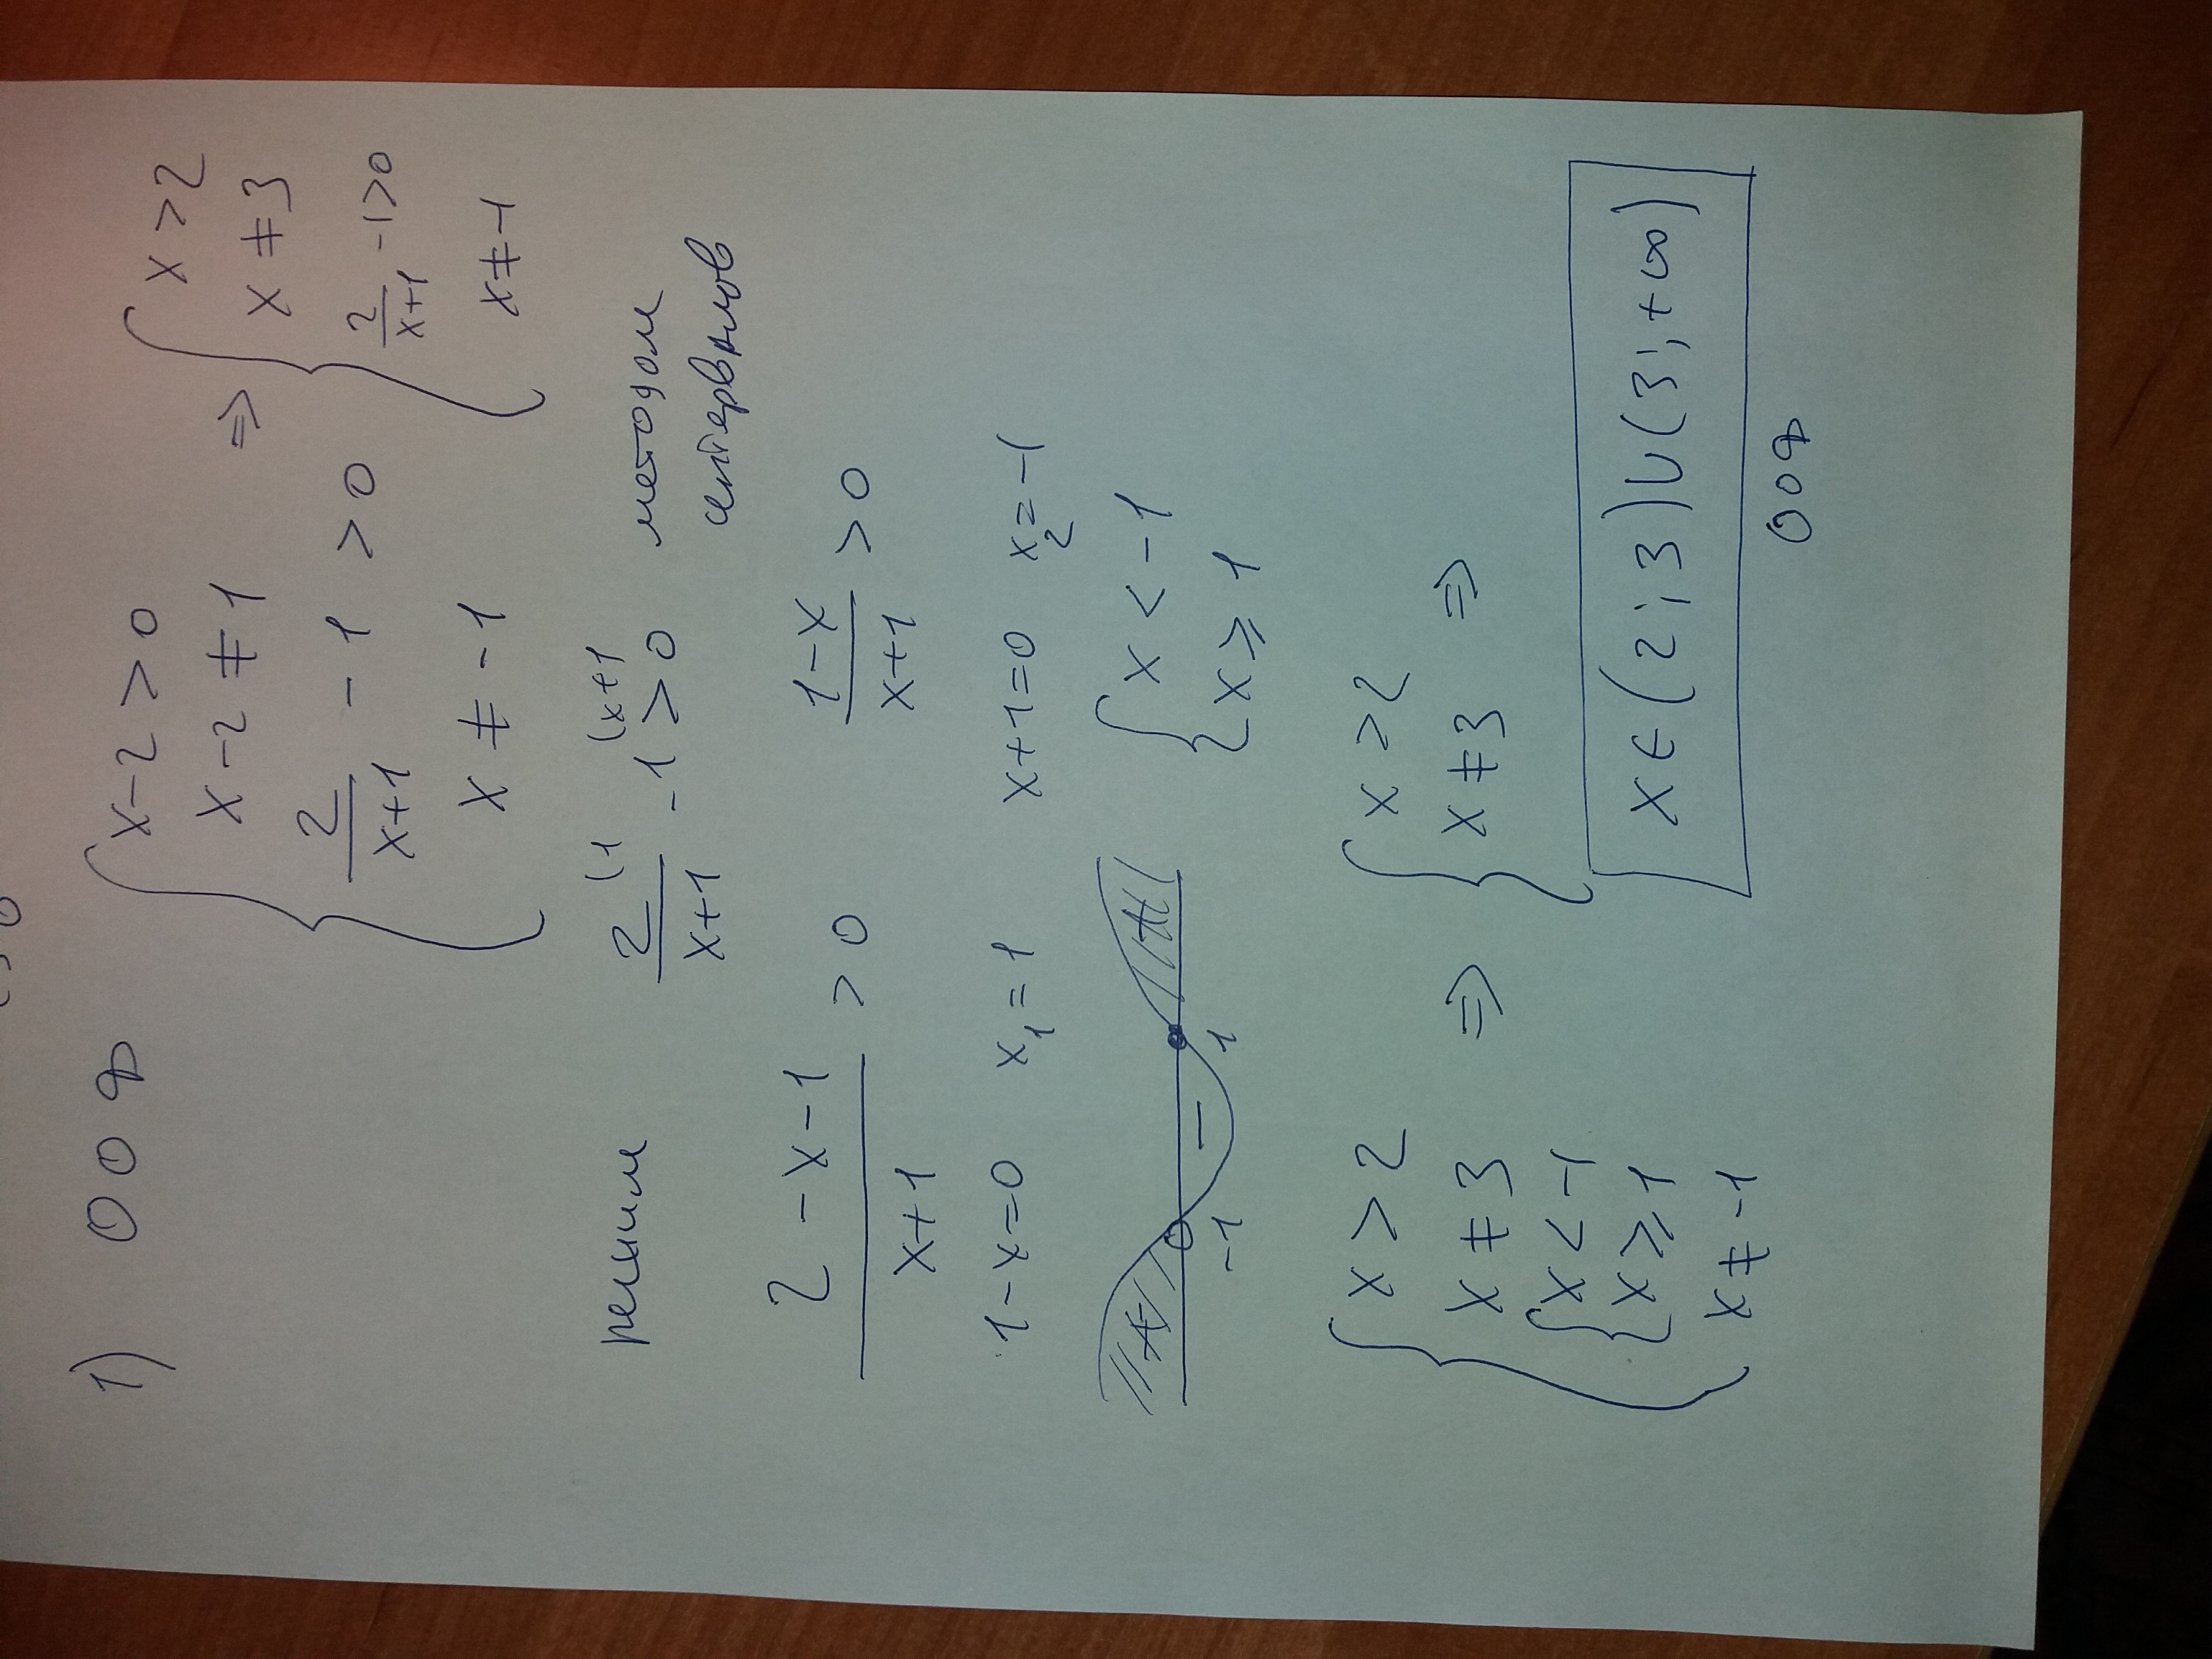 1) ООФ { x-2>0 => { x>2
x-2≠1 x≠3
2/(x+1) - 1 > 0 2/(x+1) -1>0
x≠-1 x≠-1
решим 2/(x+1) (1 -1 (x+1 >0 методом
интервалов
(2-x-1)/(x+1) > 0 (1-x)/(x+1) > 0
1-x=0 x₁=1 x+1=0 x₂=-1
+ -1 – 1 + { x<-1
x≥1
{ x>2 => { x>2 =>
x≠3 x≠3
{ x<-1
x≥1
x≠-1
x∈(2;3)∪(3;+∞)
ООФ